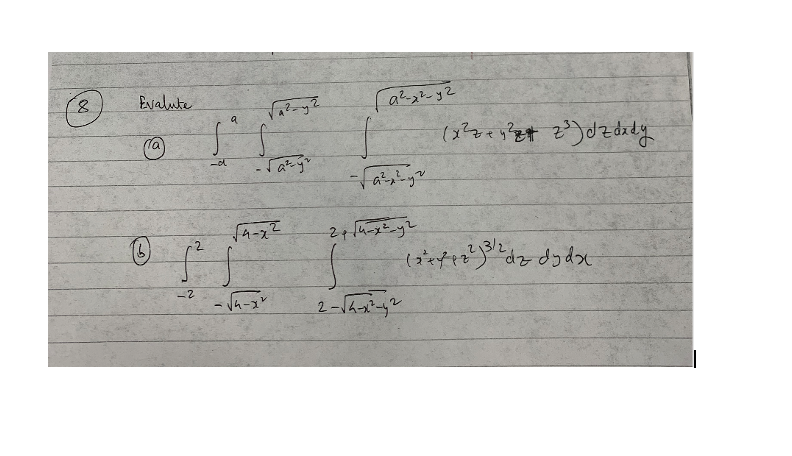 8 Evalute
(a) ∫_{-a}^{a} ∫_{-√(a²-y²)}^{√(a²-y²)} ∫_{-√(a²-x²-y²)}^{√(a²-x²-y²)} (x²z + y²z + z³) dz dx dy
(b) ∫_{-2}^{2} ∫_{-√(4-x²)}^{√(4-x²)} ∫_{2-√(4-x²-y²)}^{2+√(4-x²-y²)} (x²+y²+z²)^{3/2} dz dy dx